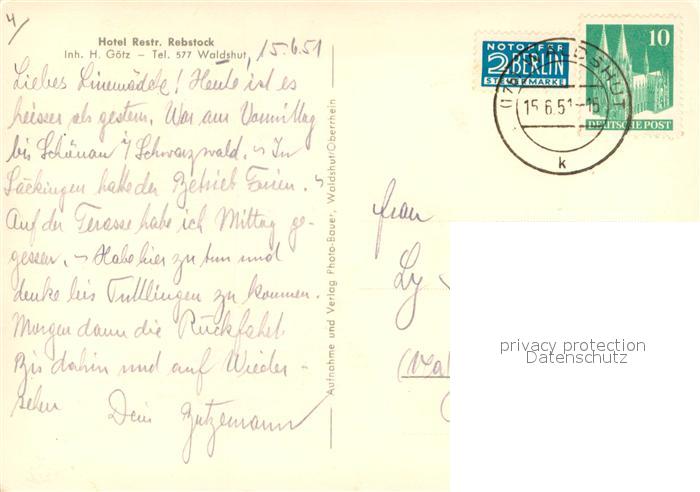 4/
Hotel Restr. Rebstock
Inh. H. Götz – Tel. 577 Waldshut, 15.6.51
Liebes! Heute ist es
heisser als gestern. War am Vormittag
bis Schönau i/Schwarzwald. ~ In
Säckingen hatte der Betrieb Ferien. ~
Auf der Terasse habe ich Mittag ge-
gessen. ~ Habe hier zu tun und
denke bis Tuttlingen zu kommen.
Morgen dann die Rückfahrt
Bis dahin und auf Wieder-
sehen Dein
Aufnahme und Verlag Photo-Bauer, Waldshut/Oberrhein
NOTOPFER
2 BERLIN
STEUERMARKE
10
DEUTSCHE POST
WALDSHUT
15.6.51-16
k
Frau
Ly
privacy protection
Datenschutz